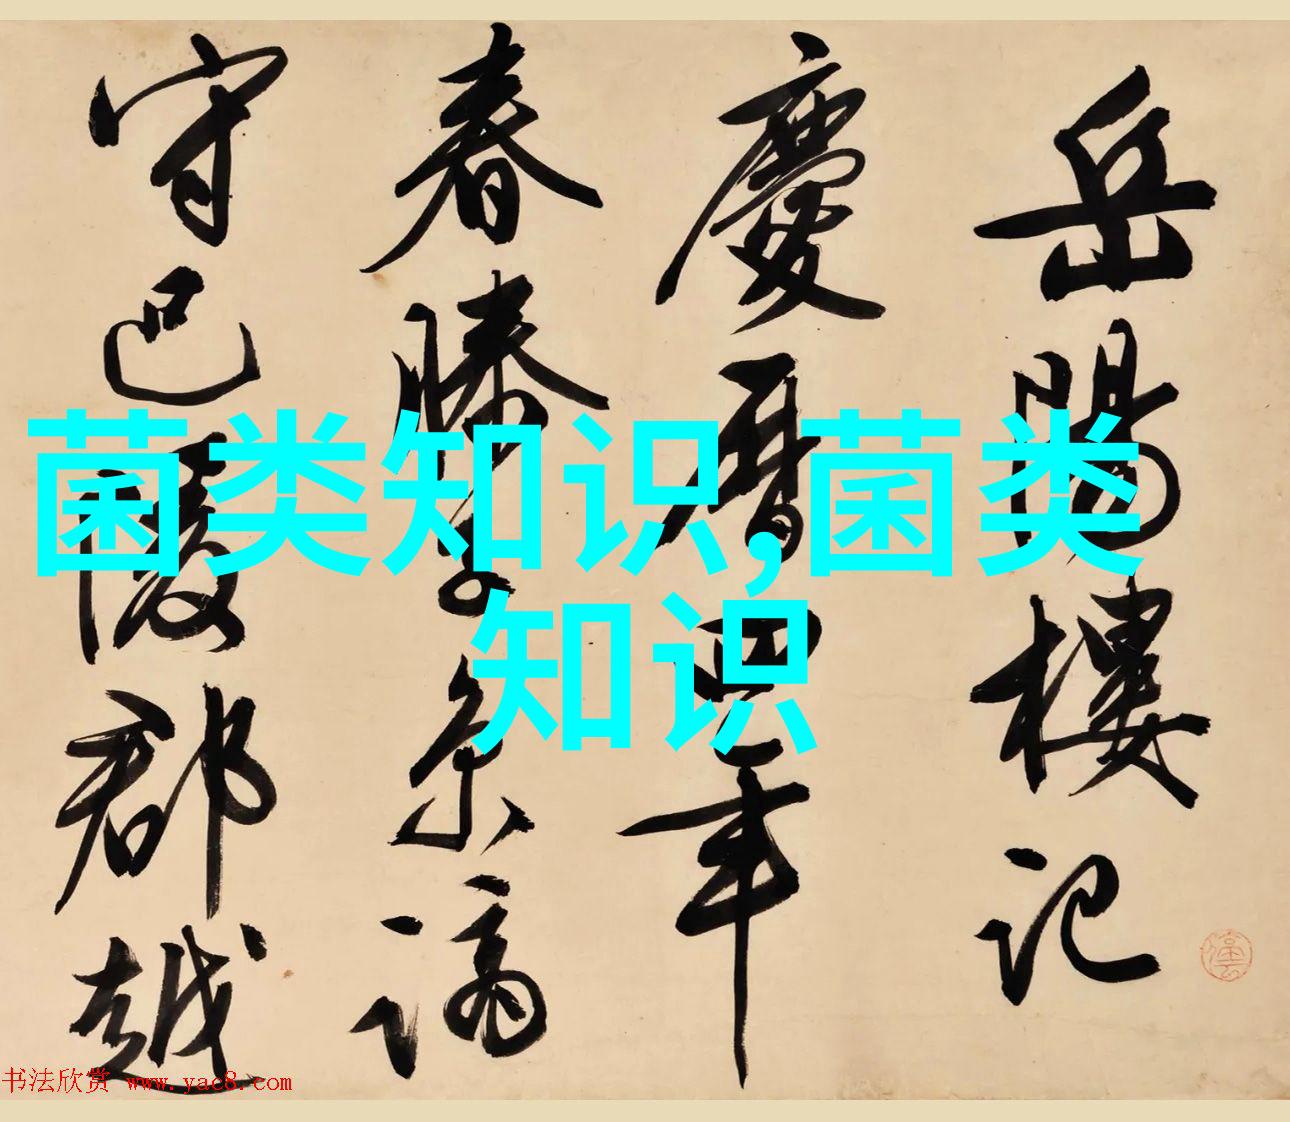 岳陽樓記
慶曆四年
春滕子京謫
守巴陵郡越
菌类知识,菌类
知识
书法欣赏 www.yac8.com